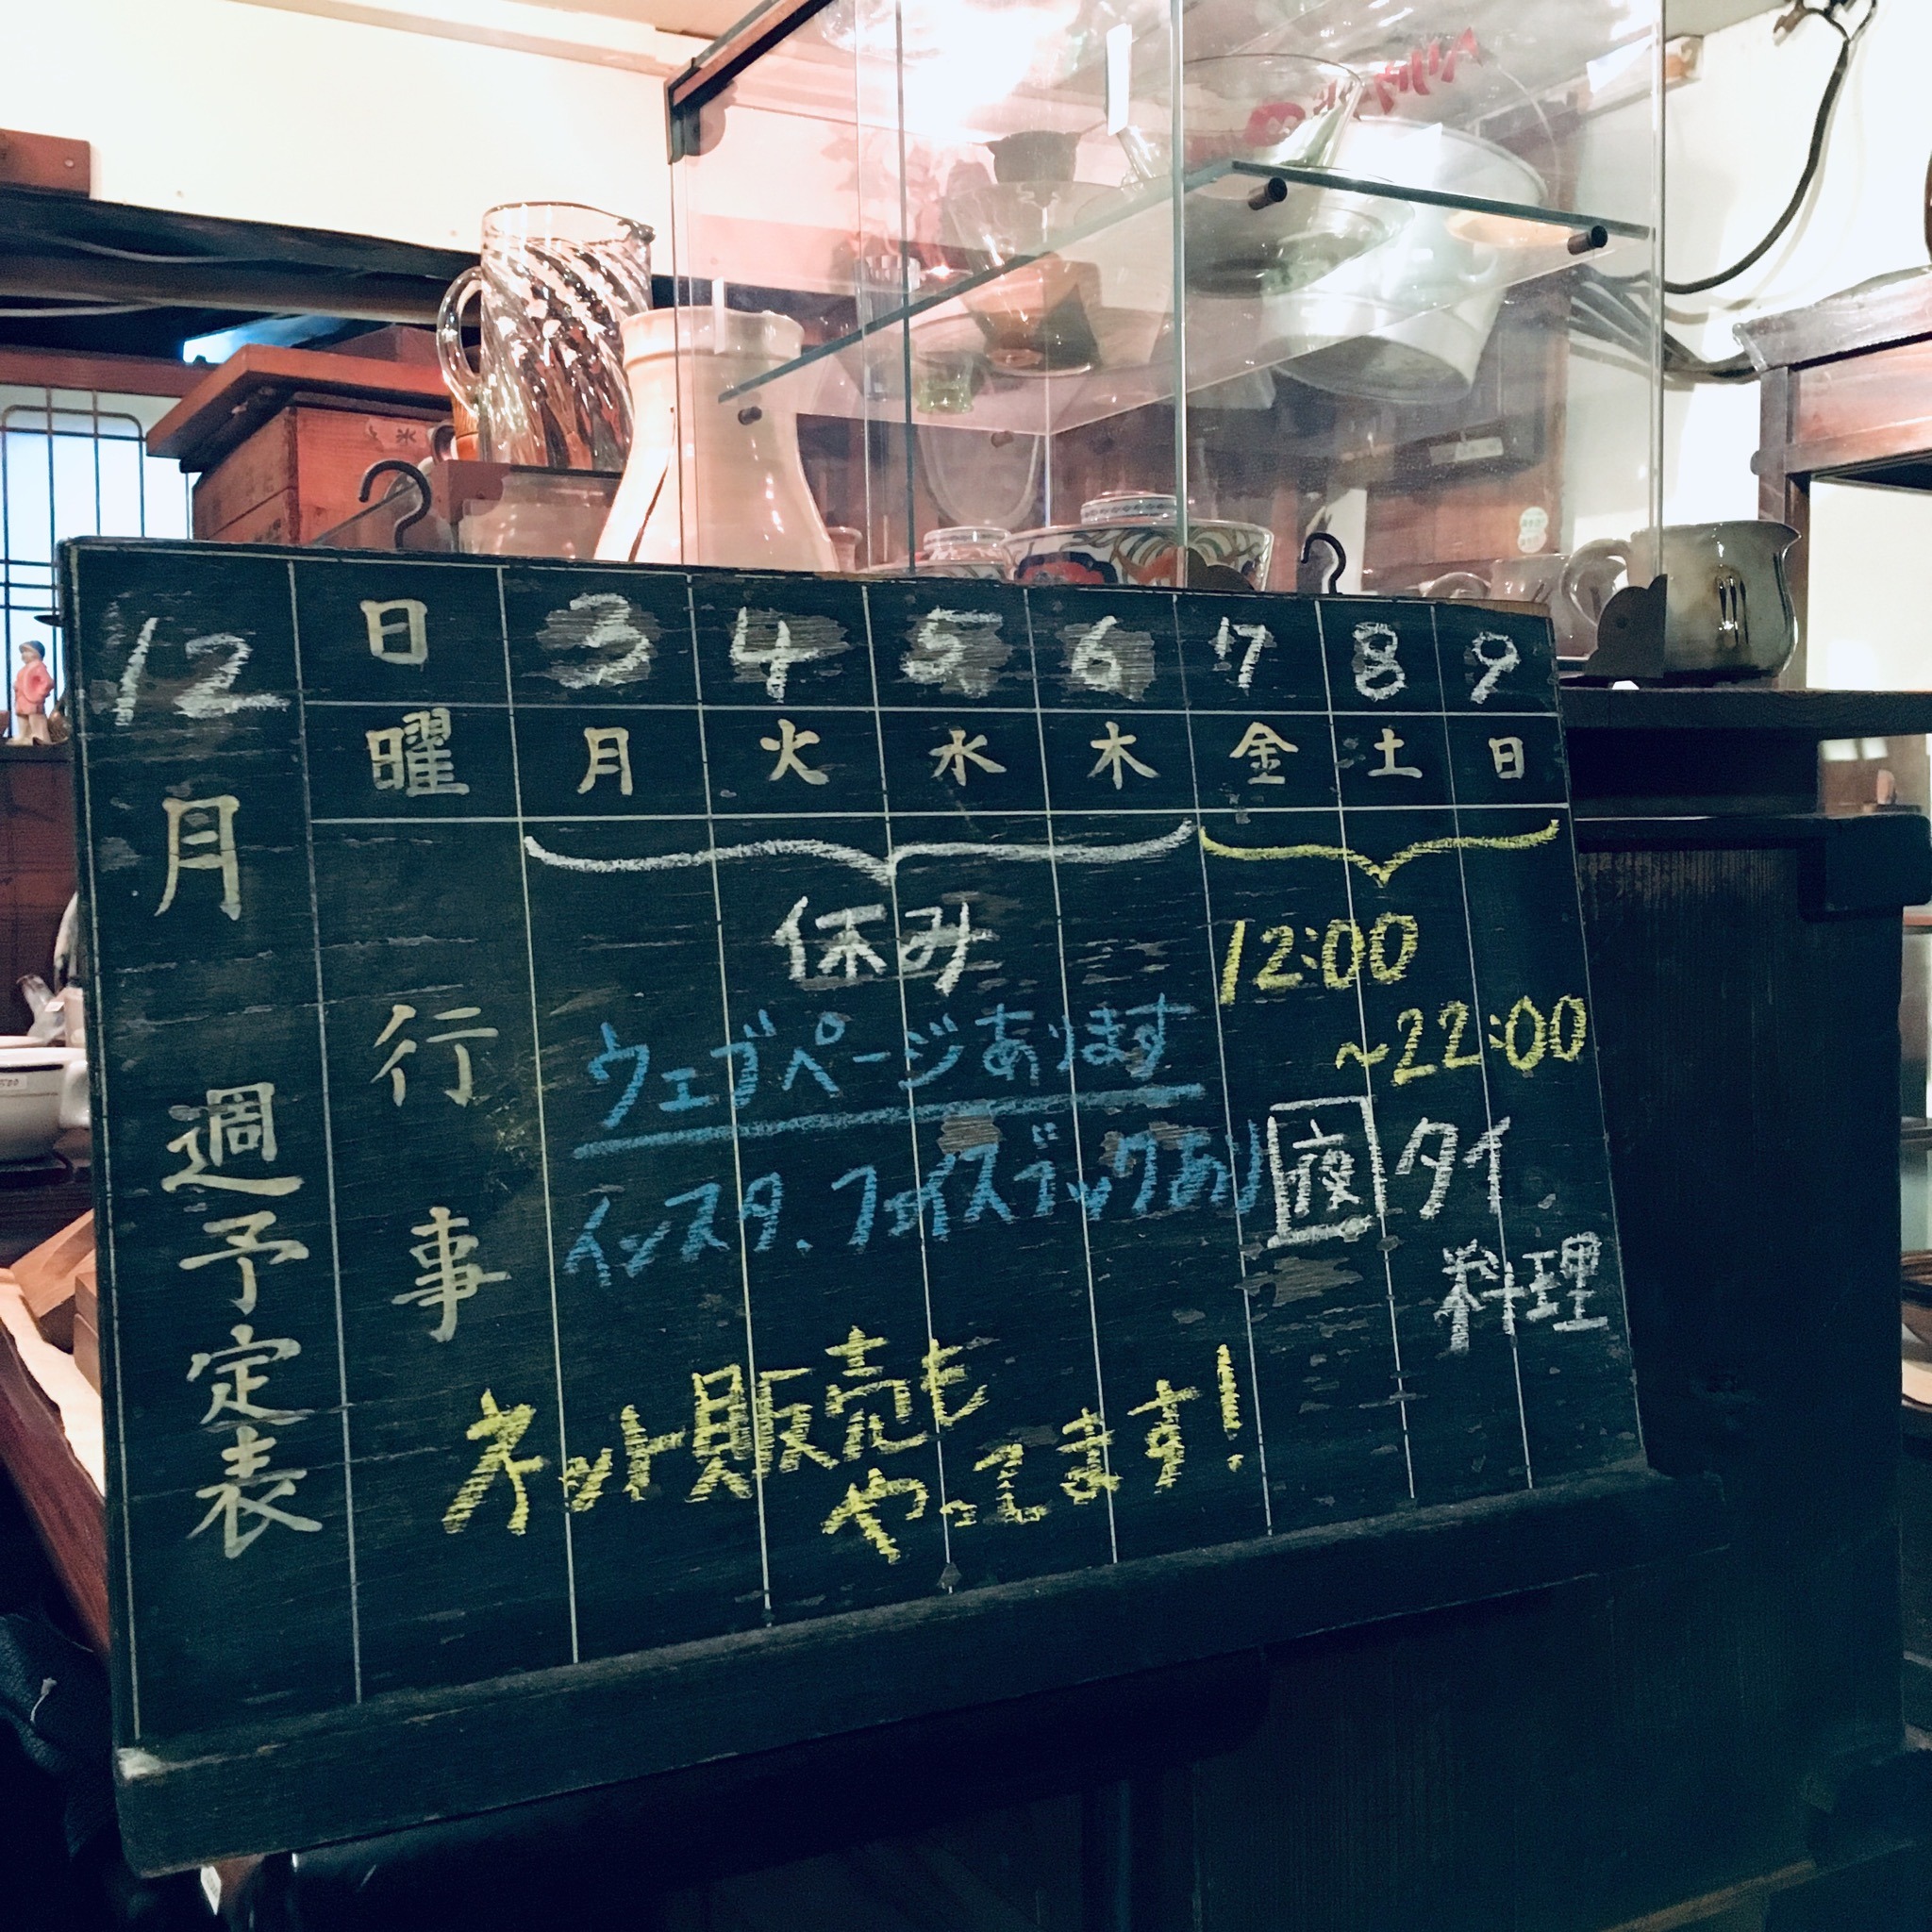 12月
週予定表
日 3 4 5 6 7 8 9
曜 月 火 水 木 金 土 日
行事
休み
12:00
~22:00
ウェブページあります
インスタ、フェイスブックあり
夜 タイ
料理
ネット販売も
やってます!
氷